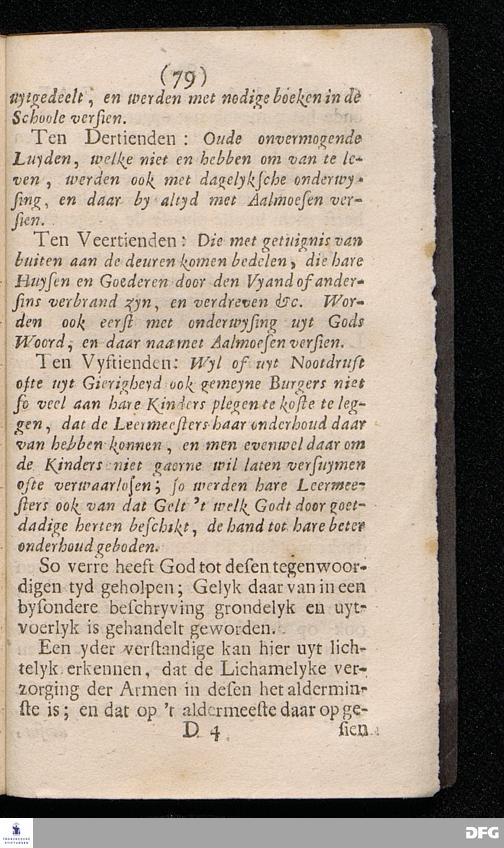 (79)
uytgedeelt, en werden met nodige boeken in de
Schoole versien.
Ten Dertienden: Oude onvermogende
Luyden, welke niet en hebben om van te le-
ven, werden ook met dagelyksche onderwy-
sing, en daar by altyd met Aalmoesen ver-
sien.
Ten Veertienden: Die met getuignis van
buiten aan de deuren komen bedelen, die hare
Huysen en Goederen door den Vyand of ander-
sins verbrand zyn, en verdreven &c. Wor-
den ook eerst met onderwysing uyt Gods
Woord, en daar naa met Aalmoesen versien.
Ten Vyftienden: Wyl of uyt Nootdruft
ofte uyt Gierigheyd ook gemeyne Burgers niet
so veel aan hare Kinders plegen te koste te leg-
gen, dat de Leermeesters haar onderhoud daar
van hebben konnen, en men evenwel daar om
de Kinders niet gaerne wil laten versuymen
ofte verwaarlosen; so werden hare Leermee-
sters ook van dat Gelt 't welk Godt door goet-
dadige herten beschikt, de hand tot hare beter
onderhoud geboden.
So verre heeft God tot desen tegenwoor-
digen tyd geholpen; Gelyk daar van in een
bysondere beschryving grondelyk en uyt-
voerlyk is gehandelt geworden.
Een yder verstandige kan hier uyt lich-
telyk erkennen, dat de Lichamelyke ver-
zorging der Armen in desen het aldermin-
ste is; en dat op 't aldermeeste daar op ge-
D 4 sien
FRANCKESCHE
STIFTUNGEN
DFG